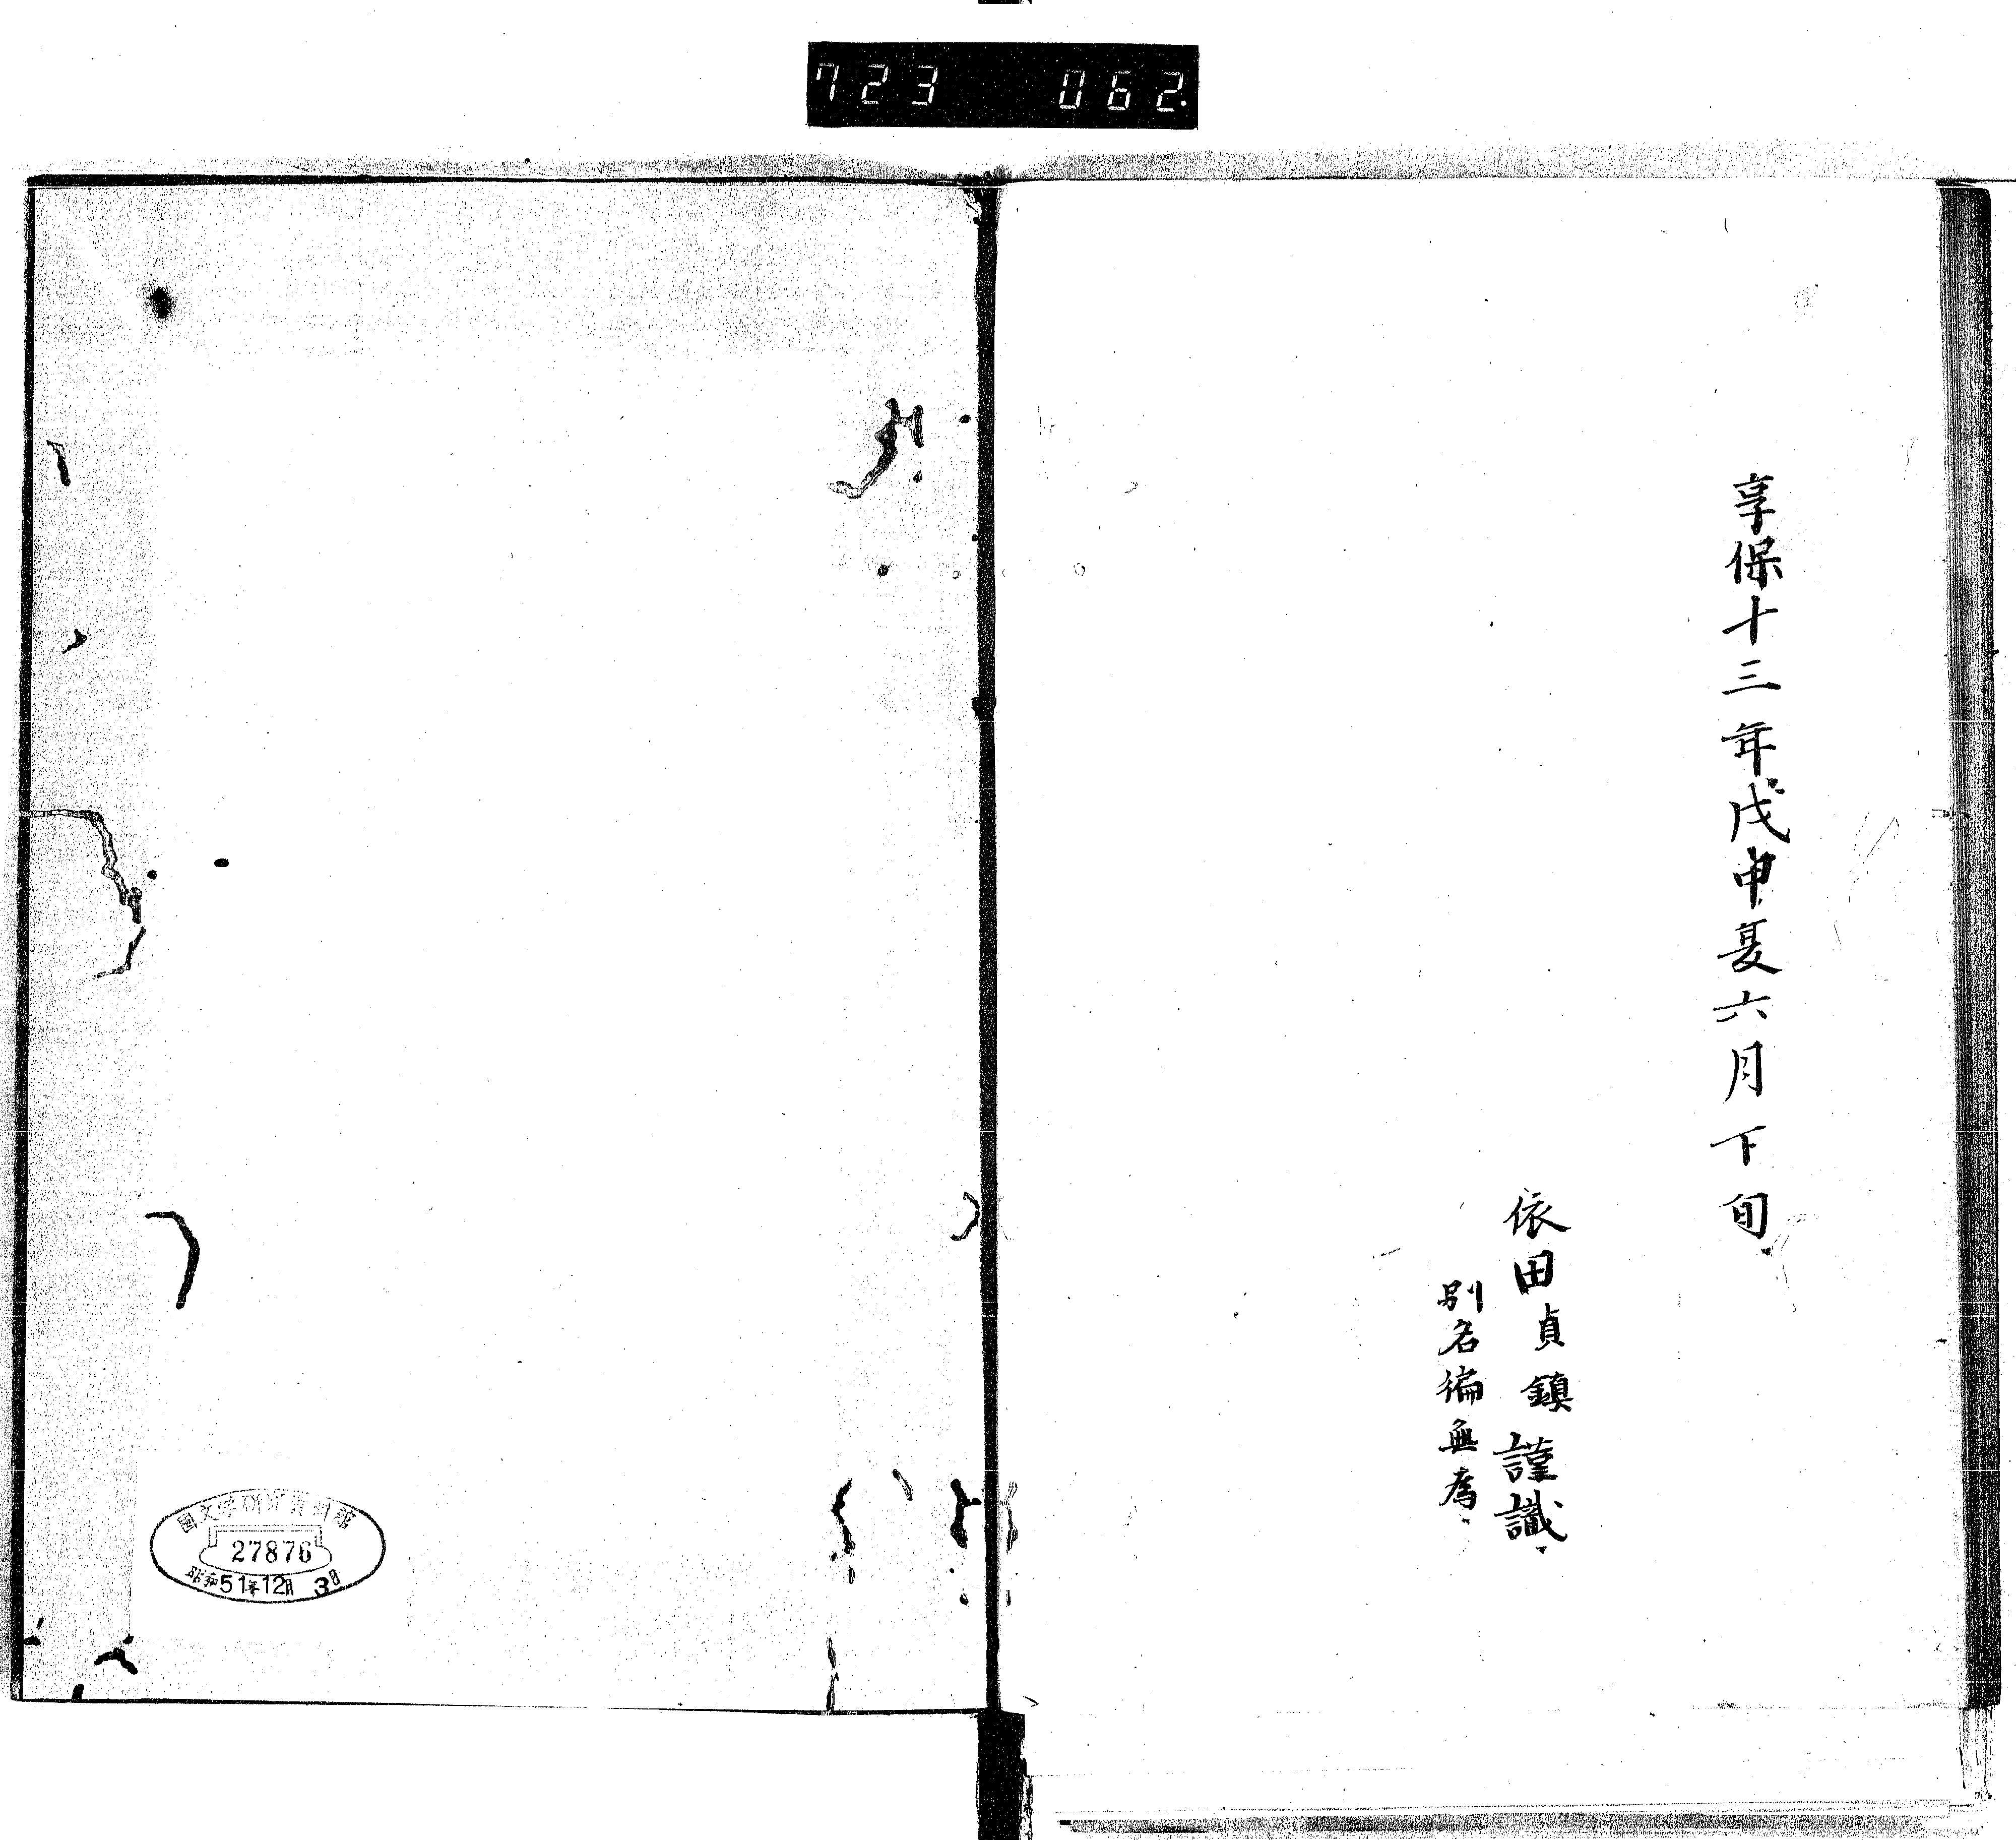 723 062
享保十三年戊申夏六月下旬
依田貞鎮謹識
別名徧無為
國文学研究資料館
27876
昭和51年12月3日